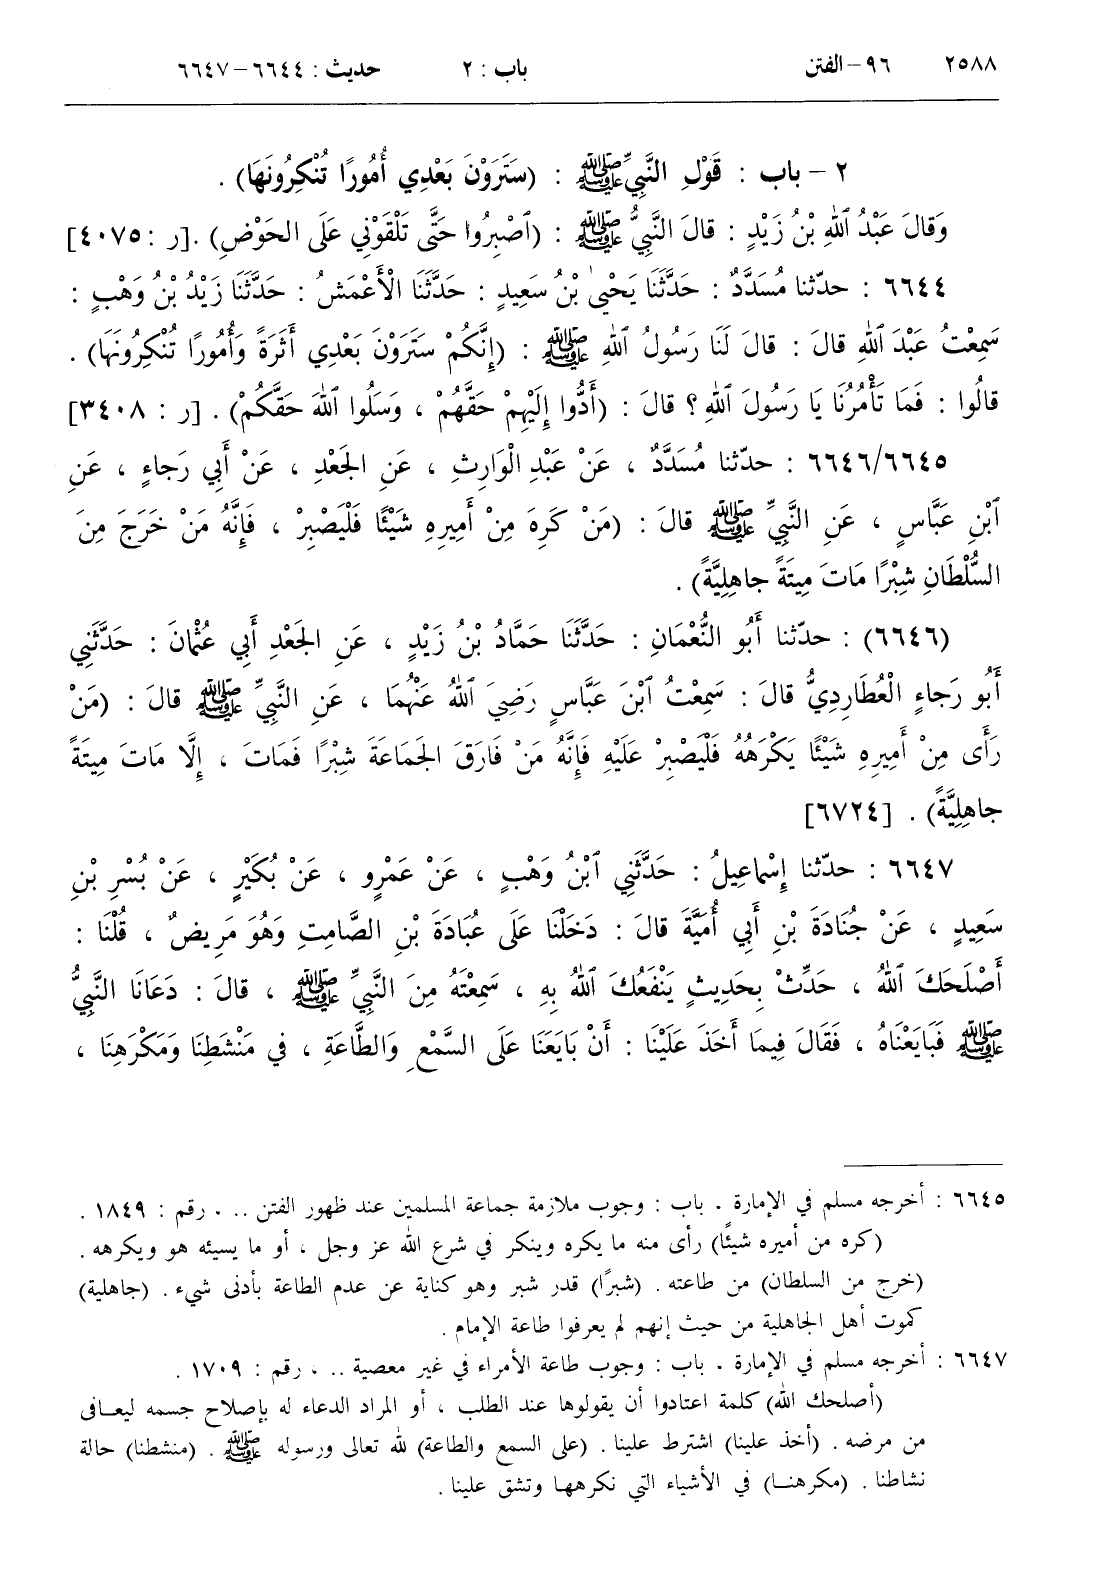 ٢٥٨٨ ٩٦ – الفتن باب : ٢ حديث : ٦٦٤٤ – ٦٦٤٧
٢ – باب : قَوْلِ النَّبِيِّ ﷺ : (سَتَرَوْنَ بَعْدِي أُمُورًا تُنْكِرُونَهَا) .
وَقالَ عَبْدُ ٱللهِ بْنُ زَيْدٍ : قالَ النَّبِيُّ ﷺ : (ٱصْبِرُوا حَتَّى تَلْقَوْنِي عَلَى الحَوْضِ) .[ر : ٤٠٧٥]
٦٦٤٤ : حدّثنا مُسَدَّدٌ : حَدَّثَنَا يَحْيىٰ بْنُ سَعِيدٍ : حَدَّثَنَا الْأَعْمَشُ : حَدَّثَنَا زَيْدُ بْنُ وَهْبٍ :
سَمِعْتُ عَبْدَ ٱللهِ قالَ : قالَ لَنَا رَسُولُ ٱللهِ ﷺ : (إِنَّكُمْ سَتَرَوْنَ بَعْدِي أَثَرَةً وَأُمُورًا تُنْكِرُونَهَا) .
قالُوا : فَمَا تَأْمُرُنَا يَا رَسُولَ ٱللهِ ؟ قالَ : (أَدُّوا إِلَيْهِمْ حَقَّهُمْ ، وَسَلُوا ٱللهَ حَقَّكُمْ) . [ر : ٣٤٠٨]
٦٦٤٦/٦٦٤٥ : حدّثنا مُسَدَّدٌ ، عَنْ عَبْدِ الْوَارِثِ ، عَنِ الجَعْدِ ، عَنْ أَبِي رَجاءٍ ، عَنِ
ٱبْنِ عَبَّاسٍ ، عَنِ النَّبِيِّ ﷺ قالَ : (مَنْ كَرِهَ مِنْ أَمِيرِهِ شَيْئًا فَلْيَصْبِرْ ، فَإِنَّهُ مَنْ خَرَجَ مِنَ
السُّلْطَانِ شِبْرًا مَاتَ مِيتَةً جاهِلِيَّةً) .
(٦٦٤٦) : حدّثنا أَبُو النُّعْمَانِ : حَدَّثَنَا حَمَّادُ بْنُ زَيْدٍ ، عَنِ الجَعْدِ أَبِي عُثْمانَ : حَدَّثَنِي
أَبُو رَجاءٍ الْعُطَارِدِيُّ قالَ : سَمِعْتُ ٱبْنَ عَبَّاسٍ رَضِيَ ٱللهُ عَنْهُمَا ، عَنِ النَّبِيِّ ﷺ قالَ : (مَنْ
رَأَى مِنْ أَمِيرِهِ شَيْئًا يَكْرَهُهُ فَلْيَصْبِرْ عَلَيْهِ فَإِنَّهُ مَنْ فَارَقَ الجَمَاعَةَ شِبْرًا فَمَاتَ ، إِلَّا مَاتَ مِيتَةً
جاهِلِيَّةً) . [٦٧٢٤]
٦٦٤٧ : حدّثنا إِسْماعِيلُ : حَدَّثَنِي ٱبْنُ وَهْبٍ ، عَنْ عَمْرٍو ، عَنْ بُكَيْرٍ ، عَنْ بُسْرِ بْنِ
سَعِيدٍ ، عَنْ جُنَادَةَ بْنِ أَبِي أُمَيَّةَ قالَ : دَخَلْنَا عَلَى عُبَادَةَ بْنِ الصَّامِتِ وَهُوَ مَرِيضٌ ، قُلْنَا :
أَصْلَحَكَ ٱللهُ ، حَدِّثْ بِحَدِيثٍ يَنْفَعُكَ ٱللهُ بِهِ ، سَمِعْتَهُ مِنَ النَّبِيِّ ﷺ ، قالَ : دَعَانَا النَّبِيُّ
ﷺ فَبَايَعْنَاهُ ، فَقَالَ فِيمَا أَخَذَ عَلَيْنَا : أَنْ بَايَعَنَا عَلَى السَّمْعِ وَالطَّاعَةِ ، في مَنْشَطِنَا وَمَكْرَهِنَا ،
٦٦٤٥ : أخرجه مسلم في الإمارة . باب : وجوب ملازمة جماعة المسلمين عند ظهور الفتن .. . رقم : ١٨٤٩ .
(كره من أميره شيئًا) رأى منه ما يكره وينكر في شرع الله عز وجل ، أو ما يسيئه هو ويكرهه .
(خرج من السلطان) من طاعته . (شبرًا) قدر شبر وهو كناية عن عدم الطاعة بأدنى شيء . (جاهلية)
كموت أهل الجاهلية من حيث إنهم لم يعرفوا طاعة الإمام .
٦٦٤٧ : أخرجه مسلم في الإمارة . باب : وجوب طاعة الأمراء في غير معصية .. ، رقم : ١٧٠٩ .
(أصلحك الله) كلمة اعتادوا أن يقولوها عند الطلب ، أو المراد الدعاء له بإصلاح جسمه ليعافى
من مرضه . (أخذ علينا) اشترط علينا . (على السمع والطاعة) لله تعالى ورسوله ﷺ . (منشطنا) حالة
نشاطنا . (مكرهنا) في الأشياء التي نكرهها وتشق علينا .